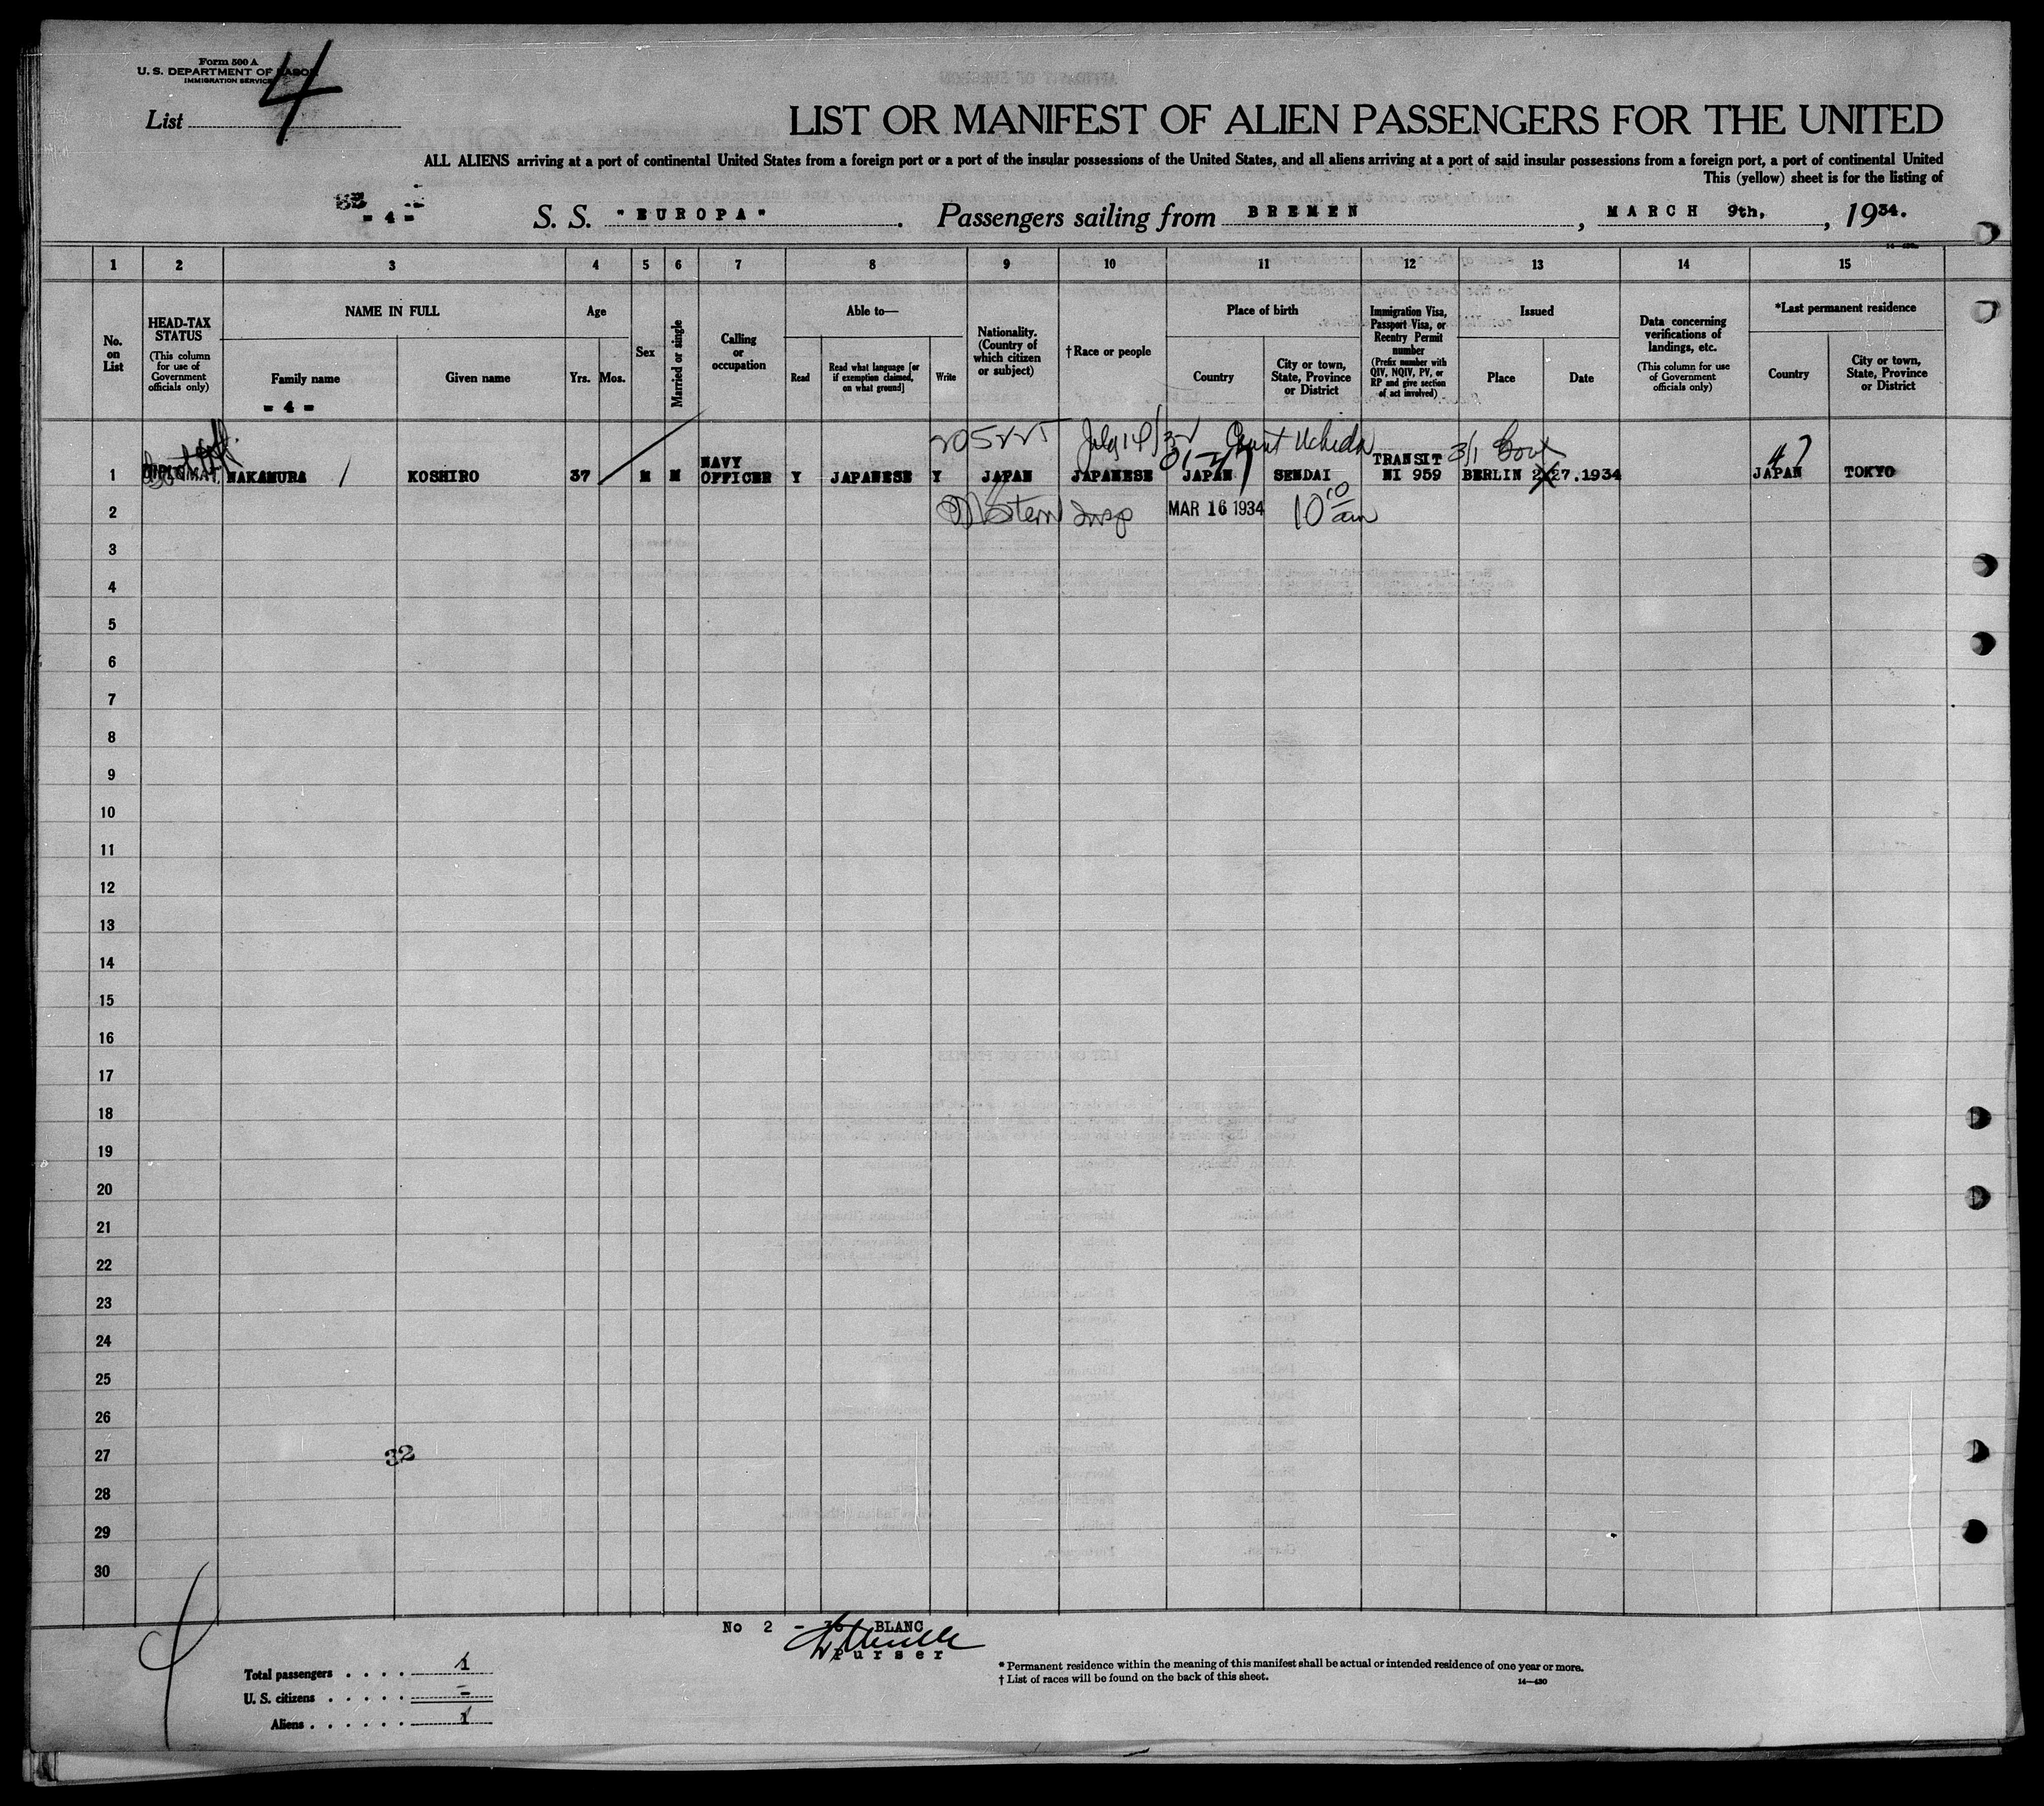 Form 500 A
U. S. DEPARTMENT OF LABOR
IMMIGRATION SERVICE
4
List
LIST OR MANIFEST OF ALIEN PASSENGERS FOR THE UNITED
ALL ALIENS arriving at a port of continental United States from a foreign port or a port of the insular possessions of the United States, and all aliens arriving at a port of said insular possessions from a foreign port, a port of continental United
This (yellow) sheet is for the listing of
- 4 -
S. S. "EUROPA". Passengers sailing from BREMEN, MARCH 9th, 1934.
1 2 3 4 5 6 7 8 9 10 11 12 13 14 15
No. on List
HEAD-TAX STATUS
(This column for use of Government officials only)
NAME IN FULL
Family name
Given name
- 4 -
Age
Yrs. Mos.
Sex
Married or single
Calling or occupation
Able to—
Read
Read what language [or if exemption claimed, on what ground]
Write
Nationality. (Country of which citizen or subject)
†Race or people
Place of birth
Country
City or town, State, Province or District
Immigration Visa, Passport Visa, or Reentry Permit number
(Prefix number with QIV, NQIV, PV, or RP and give section of act involved)
Issued
Place
Date
Data concerning verifications of landings, etc.
(This column for use of Government officials only)
*Last permanent residence
Country
City or town, State, Province or District
205225 July 14/32 Count Uchida 3/1 Govt 47
1 DIPLOMAT NAKAMURA KOSHIRO 37 M M NAVY OFFICER Y JAPANESE Y JAPAN JAPANESE JAPAN SENDAI TRANSIT NI 959 BERLIN 2/27.1934 JAPAN TOKYO
2 Insp MAR 16 1934 10 10 am
3
4
5
6
7
8
9
10
11
12
13
14
15
16
17
18
19
20
21
22
23
24
25
26
27 32
28
29
30
No 2 - 30 BLANC
Purser
Total passengers . . . . 1
U. S. citizens . . . . . -
Aliens . . . . . . 1
* Permanent residence within the meaning of this manifest shall be actual or intended residence of one year or more.
† List of races will be found on the back of this sheet.
14—430